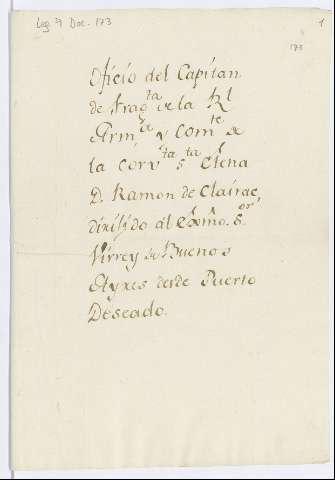 Leg. 7 Doc. 173
1
173
Oficio del Capitan
de Frag.ta de la Rl
Arm.da y Com.te de
la Corv.ta S.ta Elena
D. Ramon de Clairac,
dirixido al Exmo. S.or
Virrey de Buenos
Ayres desde Puerto
Deseado.